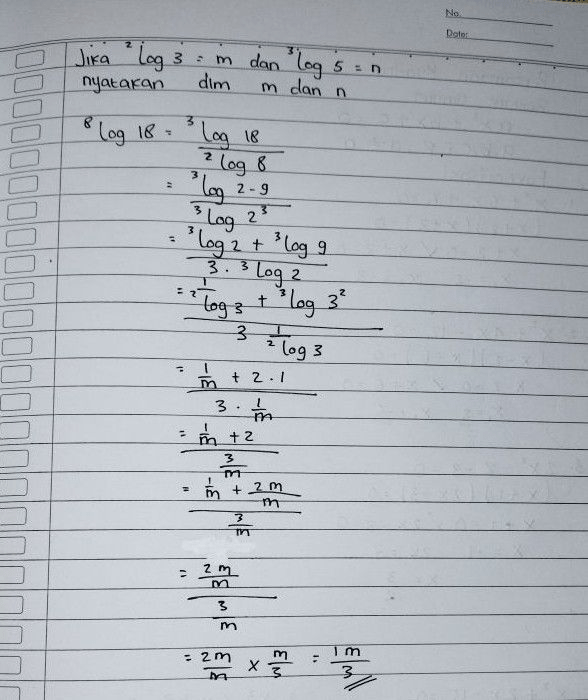 No.
Date:
Jika ²log 3 = m dan ³log 5 = n
nyatakan dlm m dan n
⁸log 18 = ³log 18 / ²log 8
= ³log 2-9 / ³log 2³
= ³log 2 + ³log 9 / 3 . ³log 2
= 1/²log 3 + ³log 3² / 3 1/²log 3
= 1/m + 2 . 1 / 3 . 1/m
= 1/m + 2 / 3/m
= 1/m + 2m/m / 3/m
= 2m/m / 3/m
= 2m/m × m/3 = 1m/3